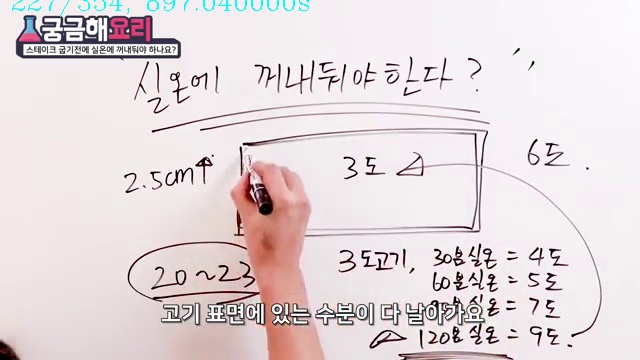 227/354, 897.040000s
궁금해요리
스테이크 굽기전에 실온에 꺼내둬야 하나요?
실온에 꺼내둬야한다?
2.5cm↑
3도
6도.
20~23
3도고기, 30분실온 = 4도
60분실온 = 5도
분실온 = 7도
120분실온 = 9도.
고기 표면에 있는 수분이 다 날아가요